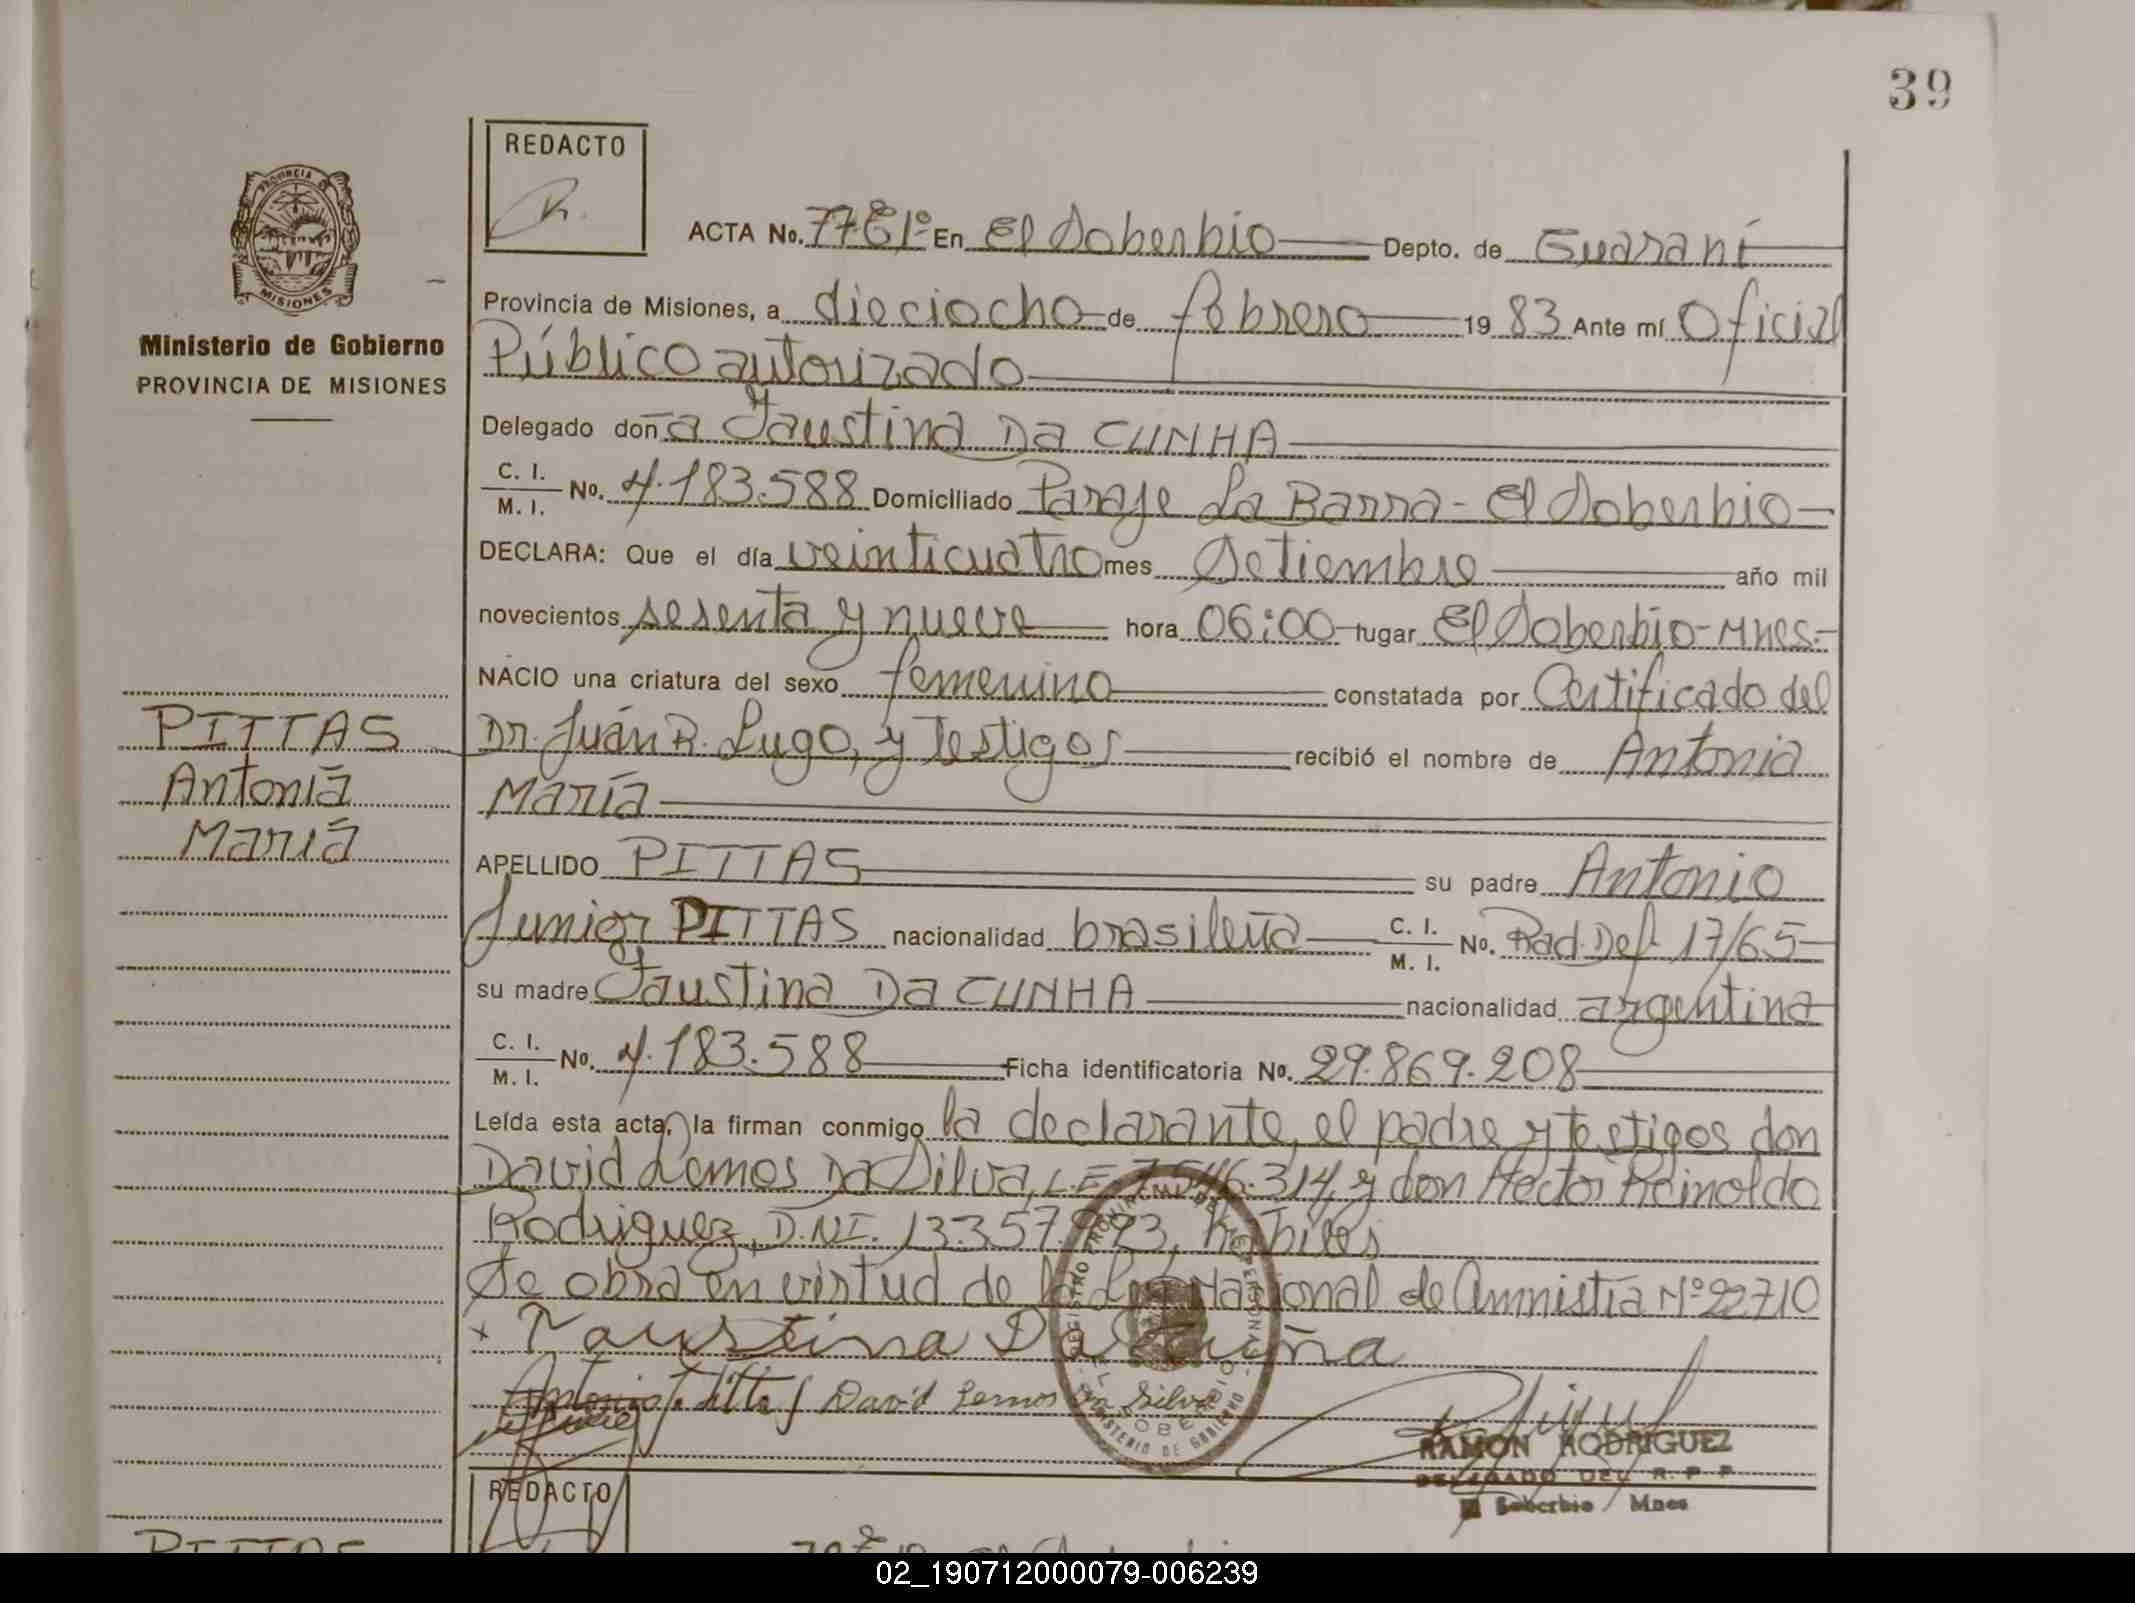 39
REDACTO
PROVINCIA
MISIONES
Ministerio de Gobierno
PROVINCIA DE MISIONES
ACTA No. En El Soberbio Depto. de Guaraní
Provincia de Misiones, a dieciocho de febrero 19 83 Ante mí Oficial
Público autorizado
Delegado doña Faustina Da CUNHA
C. I. M. I. No. 4.183.588 Domiciliado Paraje La Barra - El Soberbio -
DECLARA: Que el día veinticuatro mes Setiembre año mil
novecientos sesenta y nueve hora 06:00 lugar El Soberbio - Mnes. -
NACIO una criatura del sexo femenino constatada por Certificado del
Dr. Juán R. Lugo, y Testigos recibió el nombre de Antonia
María
PITTAS
Antonia
María
APELLIDO PITTAS su padre Antonio
Junior PITTAS nacionalidad brasileña C. I. M. I. No. Rad. Def. 17/65
su madre Faustina Da CUNHA nacionalidad argentina
C. I. M. I. No. 4.183.588 Ficha identificatoria No. 29.869.208
Leída esta acta, la firman conmigo la declarante, el padre y testigos don
David Lemos Da Silva, L.E. 7.546.314 y don Hector Reinoldo
Rodriguez, D.N.I. 13.357.993, hábiles
Se obra en virtud de la Ley Nacional de Amnistía Nº 22710
x Faustina Da Cuña
Antonio J. Pittas David Lemos Da Silva
RAMON RODRIGUEZ
DELEGADO DEL R. P. P.
El Soberbio / Mnes
REDACTO
PITTAS
02_190712000079-006239